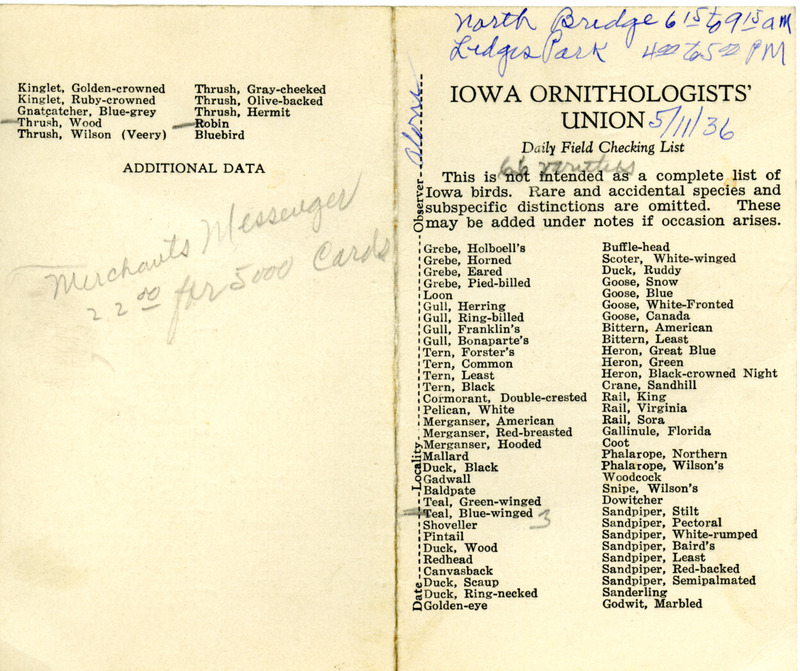 Kinglet, Golden-crowned
Kinglet, Ruby-crowned
Gnatcatcher, Blue-grey
Thrush, Wood
Thrush, Wilson (Veery)
Thrush, Gray-cheeked
Thrush, Olive-backed
Thrush, Hermit
Robin
Bluebird
ADDITIONAL DATA
Merchants Messenger
22 00 for 5000 Cards
North Bridge 6 15 to 9 15 am
Ledges Park 4 00 to 5 00 PM
IOWA ORNITHOLOGISTS'
UNION 5/11/36
Daily Field Checking List
66 varieties
This is not intended as a complete list of
Iowa birds. Rare and accidental species and
subspecific distinctions are omitted. These
may be added under notes if occasion arises.
Date Locality Observer
Grebe, Holboell's
Grebe, Horned
Grebe, Eared
Grebe, Pied-billed
Loon
Gull, Herring
Gull, Ring-billed
Gull, Franklin's
Gull, Bonaparte's
Tern, Forster's
Tern, Common
Tern, Least
Tern, Black
Cormorant, Double-crested
Pelican, White
Merganser, American
Merganser, Red-breasted
Merganser, Hooded
Mallard
Duck, Black
Gadwall
Baldpate
Teal, Green-winged
Teal, Blue-winged 3
Shoveller
Pintail
Duck, Wood
Redhead
Canvasback
Duck, Scaup
Duck, Ring-necked
Golden-eye
Buffle-head
Scoter, White-winged
Duck, Ruddy
Goose, Snow
Goose, Blue
Goose, White-Fronted
Goose, Canada
Bittern, American
Bittern, Least
Heron, Great Blue
Heron, Green
Heron, Black-crowned Night
Crane, Sandhill
Rail, King
Rail, Virginia
Rail, Sora
Gallinule, Florida
Coot
Phalarope, Northern
Phalarope, Wilson's
Woodcock
Snipe, Wilson's
Dowitcher
Sandpiper, Stilt
Sandpiper, Pectoral
Sandpiper, White-rumped
Sandpiper, Baird's
Sandpiper, Least
Sandpiper, Red-backed
Sandpiper, Semipalmated
Sanderling
Godwit, Marbled